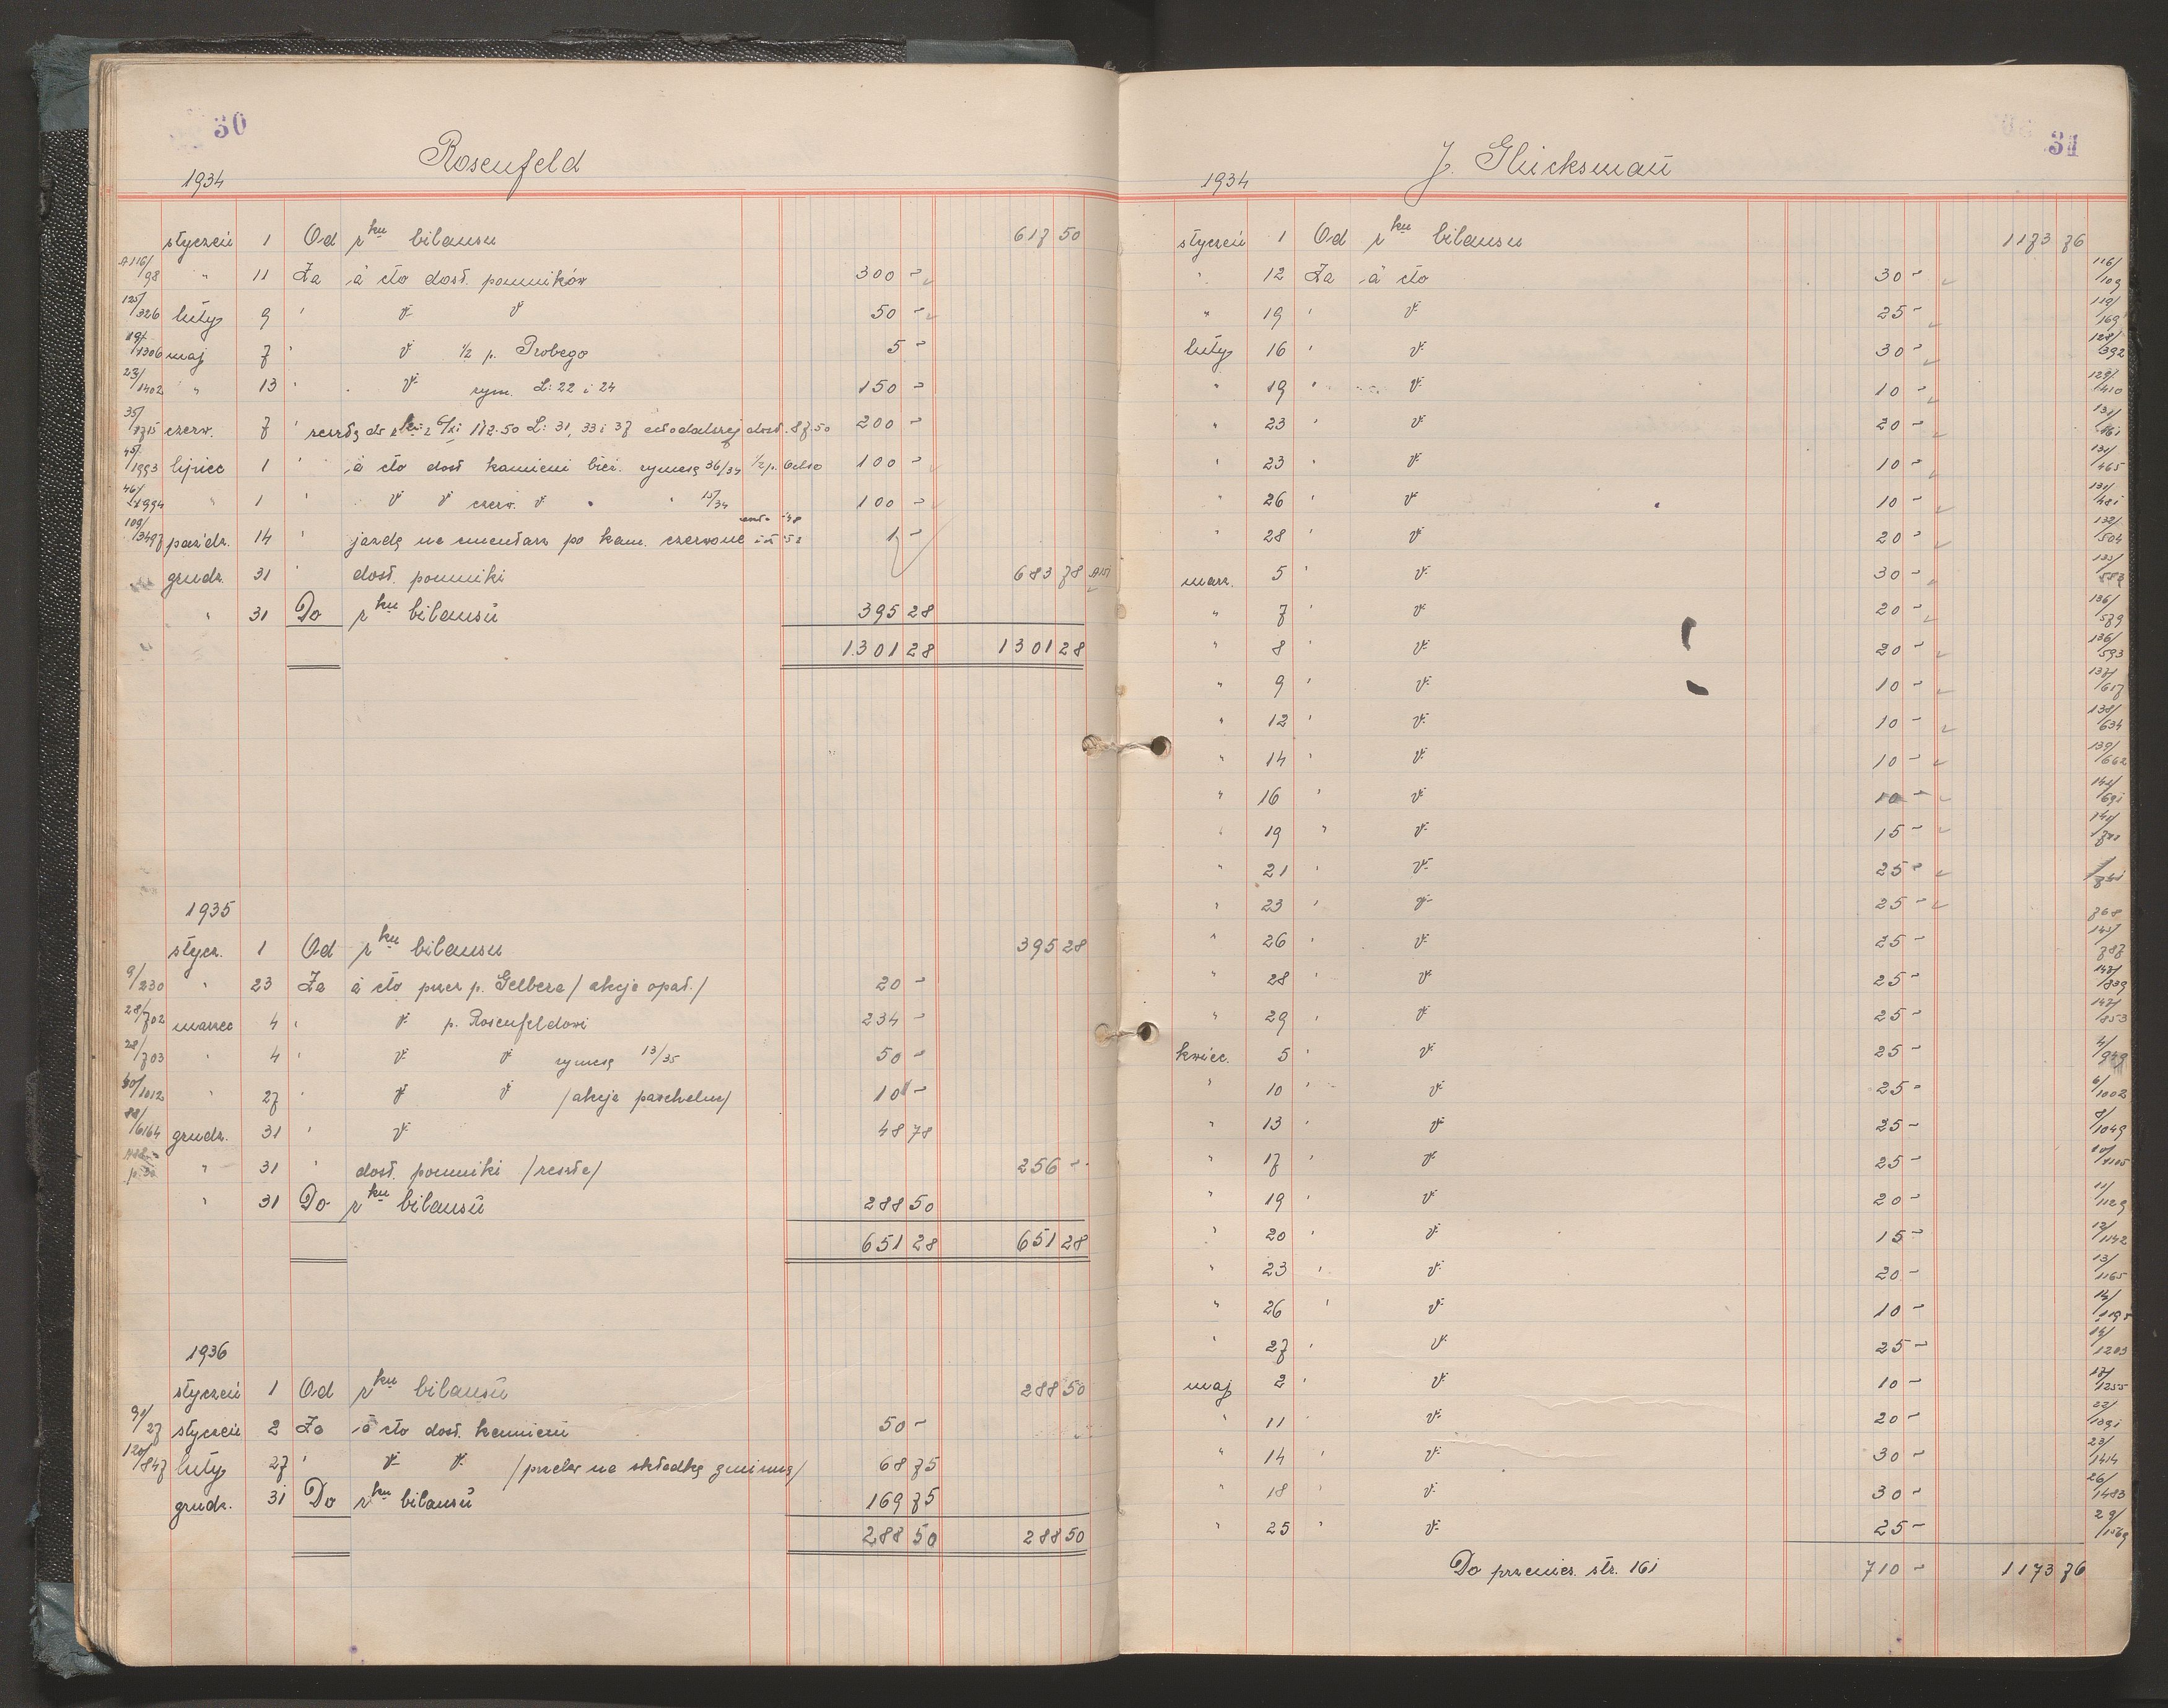 30
Rosenfeld
1934
styczeń 1 Od rku bilansu 617 50
A116/98 " 11 Za à cto dost. pomników 300 -
125/326 luty 9 " " " 50 -
19/1306 maj 7 " " 1/2 p. Probego 5 -
23/1402 " 13 " " rym. L: 22 i 24 150 -
35/1715 czerw. 7 " 200 -
45/1993 lipiec 1 " à cto dost kamieni bież. rymesę 36/34 1/2 p. 100 -
46/1994 " 1 " " " czerw. " " " 15/34 100 -
109/3497 paźdr. 14 " jazdę na cmentarz po kam. czerwone 1 -
grudz. 31 " dost. pomniki 683 78
" 31 Do rku bilansu 395 28
1301 28 1301 28
1935
stycz. 1 Od rku bilansu 395 28
9/230 " 23 Za à cto przez p. Gelbera /akcja opał./ 20 -
28/702 marzec 4 " " p. Rosenfeldowi 234 -
28/703 " 4 " " " rymesę 13/35 50 -
40/1012 " 27 " " " /akcja paschalna/ 10 -
88/6164 grudz. 31 " " 48 78
" 31 " dost. pomniki /reszta/ 256 -
" 31 Do rku bilansu 288 50
651 28 651 28
1936
styczeń 1 Od rku bilansu 288 50
91/27 styczeń 2 Za à cto dost. kamieni 50 -
120/847 luty 27 " " " /przelew na składkę gminną/ 68 75
grudz. 31 Do rku bilansu 169 75
288 50 288 50
31
J. Glücksman
1934
styczeń 1 Od rku bilansu 1173 76
" 12 Za à cto 30 - 116/109
" 19 " " 25 - 119/169
luty 16 " " 30 - 128/392
" 19 " " 10 - 129/410
" 23 " " 20 - 131/461
" 23 " " 10 - 131/465
" 26 " " 10 - 131/481
" 28 " " 20 - 132/504
marz. 5 " " 30 -
" 7 " " 20 - 136/579
" 8 " " 20 - 136/593
" 9 " " 10 - 137/617
" 12 " " 10 - 138/634
" 14 " " 10 - 139/662
" 16 " " 10 - 141/691
" 19 " " 15 -
" 21 " " 25 - 741
" 23 " " 25 - 768
" 26 " " 25 - 145/787
" 28 " " 25 - 147/839
" 29 " " 25 - 147/853
kwiec. 5 " " 25 - 4/949
" 10 " " 25 - 6/1002
" 13 " " 25 - 8/1049
" 17 " " 25 - 10/1105
" 19 " " 20 - 11/1129
" 20 " " 15 - 12/1142
" 23 " " 20 - 13/1165
" 26 " " 10 - 14/1195
" 27 " " 25 - 14/1203
maj 2 " " 10 - 17/1255
" 11 " " 20 - 22/1391
" 14 " " 30 - 23/1414
" 18 " " 30 - 26/1483
" 25 " " 25 - 29/1569
Do przenies. str. 161 710 - 1173 76